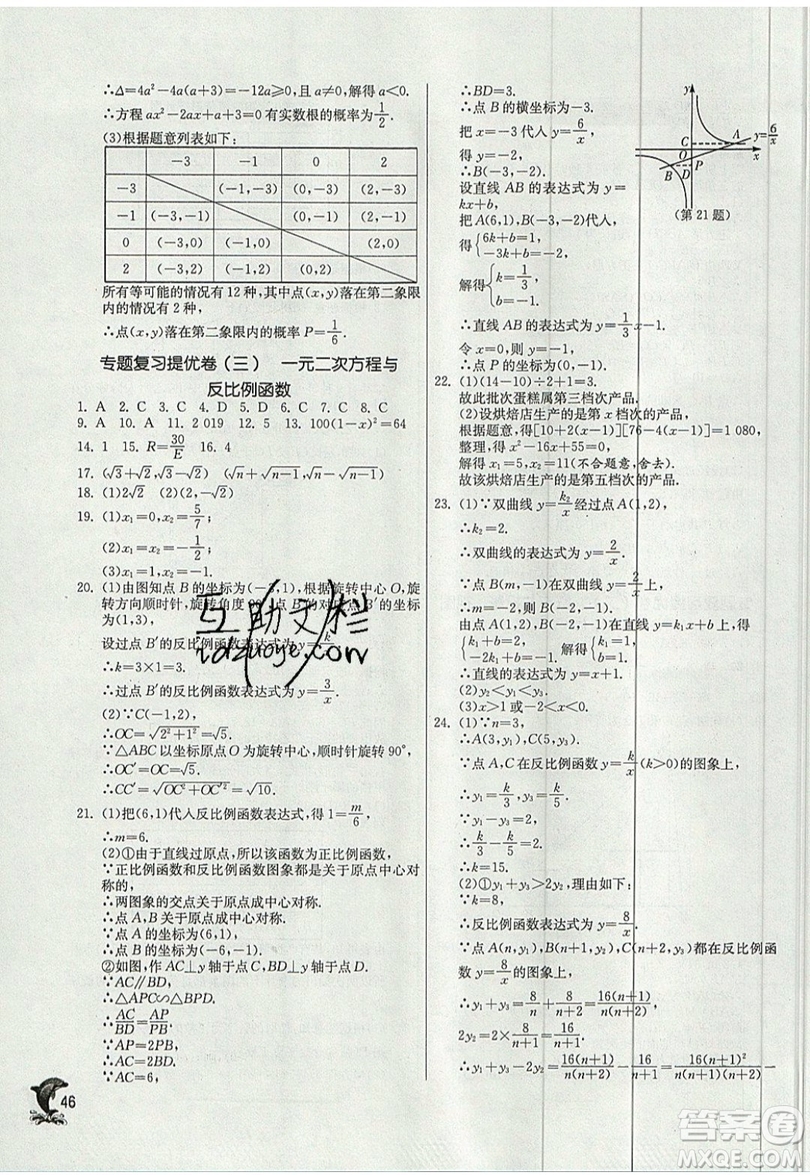 ∴Δ=4a²-4a(a+3)=-12a≥0,且a≠0,解得a<0.
∴方程ax²-2ax+a+3=0有实数根的概率为1/2.
(3)根据题意列表如下:
-3 -1 0 2
-3 (-1,-3) (0,-3) (2,-3)
-1 (-3,-1) (0,-1) (2,-1)
0 (-3,0) (-1,0) (2,0)
2 (-3,2) (-1,2) (0,2)
所有等可能的情况有12种,其中点(x,y)落在第二象限内的情况有2种,
∴点(x,y)落在第二象限内的概率P=1/6.
专题复习提优卷(三) 一元二次方程与
反比例函数
1. A 2. C 3. C 4. D 5. D 6. C 7. C 8. C
9. A 10. A 11. 2 019 12. 5 13. 100(1-x)²=64
14. 1 15. R=30/E 16. 4
17. (√3+√2) (√n+√n-1)(√n-√n-1)
18. (1)2√2 (2)√2
19. (1)x₁=0,x₂=5/7;
(2)x₁=3,x₂=-1/2;
(3)x₁=1,x₂=5.
20. (1)由图知点B的坐标为(-3,1),根据旋转中心O,旋
转方向顺时针,旋转角度90°,点B的对应点B′的坐标
为(1,3),
设过点B′的反比例函数表达式为y=k/x,
∴k=3×1=3.
∴过点B′的反比例函数表达式为y=3/x.
(2)∵C(-1,2),
∴OC=√2²+1²=√5.
∵△ABC以坐标原点O为旋转中心,顺时针旋转90°,
∴OC′=OC=√5.
∴CC′=√OC²+OC′²=√10.
21. (1)把(6,1)代人反比例函数表达式,得1=m/6,
∴m=6.
(2)①由于直线过原点,所以该函数为正比例函数.
∵正比例函数和反比例函数图象都是关于原点中心对
称的,
∴两图象的交点关于原点成中心对称.
∴点A,B关于原点成中心对称.
∵点A的坐标为(6,1),
∴点B的坐标为(-6,-1).
②如图,作AC⊥y轴于点C,BD⊥y轴于点D.
∵AC∥BD,
∴△APC∽△BPD.
∴AC/BD=AP/PB.
∵AP=2PB,
∴AC=2BD.
∵AC=6,
46
∴BD=3.
∴点B的横坐标为-3.
把x=-3代人y=6/x,
得y=-2.
∴B(-3,-2).
设直线AB的表达式为y=
kx+b,
把A(6,1),B(-3,-2)代人,
得{6k+b=1, -3k+b=-2,
解得{k=1/3, b=-1.
∴直线AB的表达式为y=1/3x-1.
令x=0,解得y=-1.
∴点P的坐标为(0,-1).
y
y=6/x
C
A
O
x
P
B
D
(第21题)
22. (1)(14-10)÷2+1=3.
故此批次蛋糕属第三档次产品.
(2)设烘焙店生产的是第x档次的产品.
根据题意,得[10+2(x-1)][76-4(x-1)]=1 080,
整理,得x²-16x+55=0.
解得x₁=5,x₂=11(不合题意,舍去).
故该烘焙店生产的是第五档次产品.
23. (1)∵双曲线y=k₂/x经过点A(1,2),
∴k₂=2.
∴双曲线的表达式为y=2/x.
∵点B(m,-1)在双曲线y=2/x上,
∴m=-2,则B(-2,-1).
由点A(1,2),B(-2,-1)在直线y=k₁x+b上,
得{k₁+b=2, -2k₁+b=-1. 解得{k₁=1, b=1.
∴直线的表达式为y=x+1.
(2)y₂<y₁<y₃.
(3)x>1或-2<x<0.
24. (1)∵n=3,
∴A(3,y₁),C(5,y₃).
∵点A,C在反比例函数y=k/x(k>0)的图象上,
∴y₁=k/3,y₃=k/5.
∵y₁-y₃=2,
∴k/3-k/5=2.
∴k=15.
(2)①y₁+y₃>2y₂,理由如下:
∵k=8,
∴反比例函数表达式为y=8/x.
∵点A(n,y₁),B(n+1,y₂),C(n+2,y₃)都在反比例函
数y=8/x的图象上,
∴y₁+y₃=8/n+8/(n+2)=16(n+1)/n(n+2),
2y₂=2×8/(n+1)=16/(n+1).
∴y₁+y₃-2y₂=16(n+1)/n(n+2)-16/(n+1)=16(n+1)²/n(n+1)(n+2)-
互助文栏
idzuoye.com
答案圈
MXQE.COM